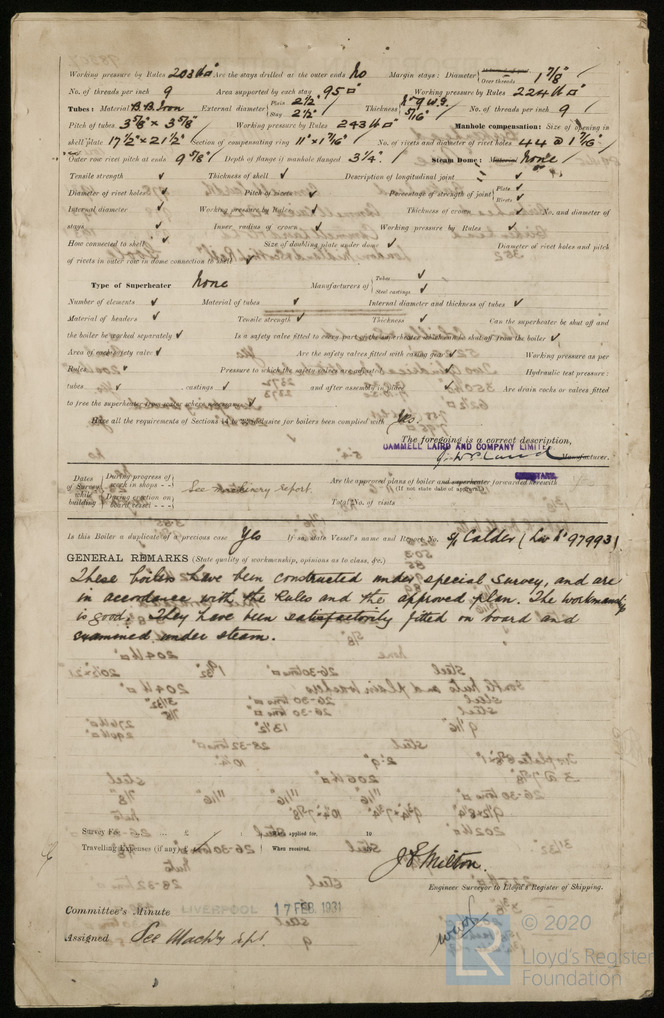 Working pressure by Rules 203 lb □" Are the stays drilled at the outer ends No Margin stays: Diameter { Over threads 1 7/8"
No. of threads per inch 9 Area supported by each stay 95 □" Working pressure by Rules 224 lb □"
Tubes: Material B.B. Iron External diameter { Plain 2 1/2" Stay 2 1/2" Thickness { 9 W.G. 5/16" No. of threads per inch 9
Pitch of tubes 3 5/8" × 3 5/8" Working pressure by Rules 243 lb □" Manhole compensation: Size of opening in
shell plate 17 1/2" × 21 1/2" Section of compensating ring 11" × 1 7/16" No. of rivets and diameter of rivet holes 44 @ 1 7/16"
Outer row rivet pitch at ends 9 5/8" Depth of flange if manhole flanged 3 1/4" Steam Dome: Material None
Tensile strength ✓ Thickness of shell ✓ Description of longitudinal joint
Diameter of rivet holes ✓ Pitch of rivets ✓ Percentage of strength of joint { Plate ✓ Rivets ✓
Internal diameter ✓ Working pressure by Rules ✓ Thickness of crown ✓ No. and diameter of
stays ✓ Inner radius of crown ✓ Working pressure by Rules ✓
How connected to shell ✓ Size of doubling plate under dome ✓ Diameter of rivet holes and pitch
of rivets in outer row in dome connection to shell ✓
Type of Superheater None Manufacturers of { Tubes ✓ Steel castings ✓
Number of elements ✓ Material of tubes ✓ Internal diameter and thickness of tubes ✓
Material of headers ✓ Tensile strength ✓ Thickness ✓ Can the superheater be shut off and
the boiler be worked separately ✓ Is a safety valve fitted to every part of the superheater which can be shut off from the boiler ✓
Area of each safety valve ✓ Are the safety valves fitted with easing gear ✓ Working pressure as per
Rules ✓ Pressure to which the safety valves are adjusted ✓ Hydraulic test pressure:
tubes ✓ castings ✓ and after assembly in place ✓ Are drain cocks or valves fitted
to free the superheater from water where necessary ✓
Have all the requirements of Sections 14 to 22 inclusive for boilers been complied with Yes.
The foregoing is a correct description,
CAMMELL LAIRD AND COMPANY LIMITED
Manufacturer.
SECRETARY.
Dates of Survey while building { During progress of work in shops - - During erection on board vessel - - - } See Machinery report. Are the approved plans of boiler and superheater forwarded herewith (If not state date of approval.)
Total No. of visits
Is this Boiler a duplicate of a previous case Yes If so, state Vessel's name and Report No. Calder (Liv No 97993)
GENERAL REMARKS (State quality of workmanship, opinions as to class, &c.)
These boilers have been constructed under special survey, and are
in accordance with the Rules and the approved plan. The workmanship
is good. They have been satisfactorily fitted on board and
examined under steam.
Survey Fee ... ... £ : : When applied for, 19
Travelling Expenses (if any) £ : : When received, 19
J E Milton.
Engineer Surveyor to Lloyd's Register of Shipping.
Committee's Minute LIVERPOOL 17 FEB. 1931
Assigned See Machy Rpt
© 2020
Lloyd's Register
Foundation
LR